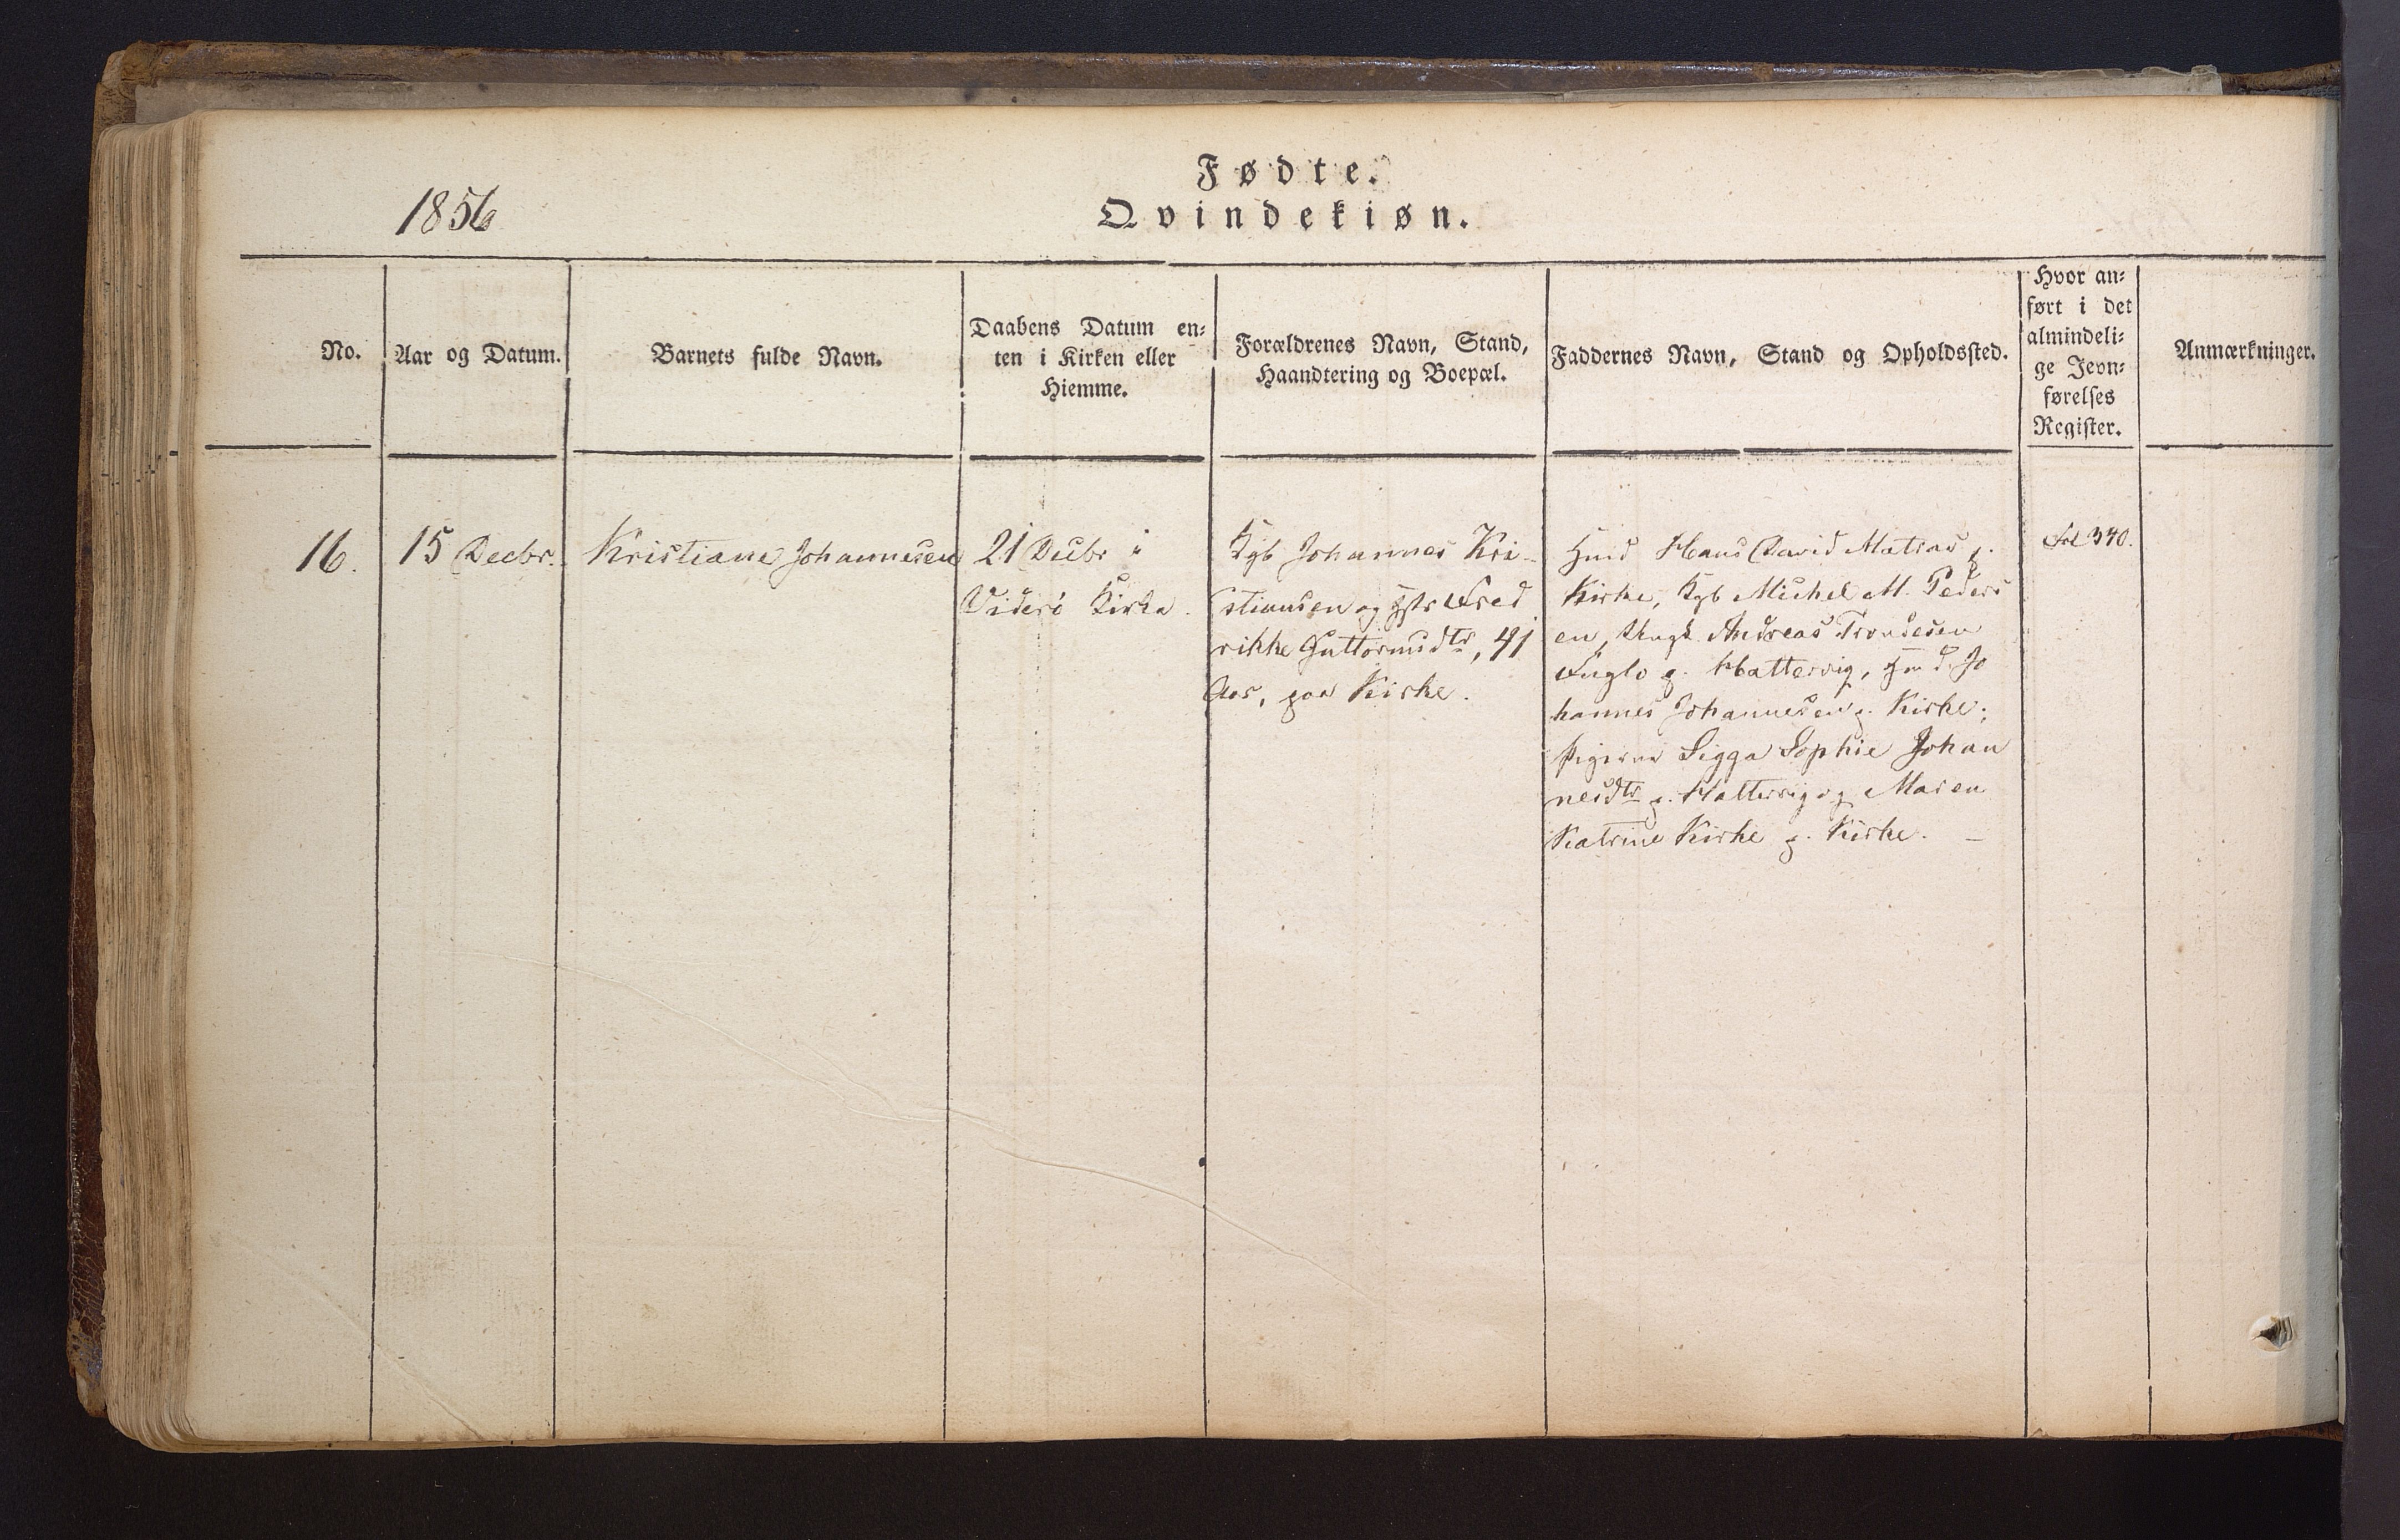 Fødte.
1856
Qvindekiøn.
No.
Aar og Datum.
Barnets fulde Navn.
Taabens Datum en-
ten i Kirken eller
Hiemme.
Forældrenes Navn, Stand,
Haandtering og Boepæl.
Faddernes Navn, Stand og Opholdssted.
Hvor an-
ført i det
almindeli-
ge Jevn-
førelses
Register.
Anmærkninger.
16.
15 Decbr.
Kristiane Johannesen
21 Decbr i
Viderö Kirke.
Kgb Johannes Kri-
stiansen og Hstr Fred
rikke Guttormsdtr, 41
Aar, paa Kirke.
Hmd Hans David Matias p.
Kirke, Kgb Michel M. Peders
en, Ungk. Andreas Trondesen
Fuglö p. Hattervig, Hmd. Jo
hannes Johannesen p. Kirke;
Pigerne Sigga Sophie Johan
nesdtr p. Hattervig og Maren
Katrine Kirke p. Kirke. –
Fol 340.